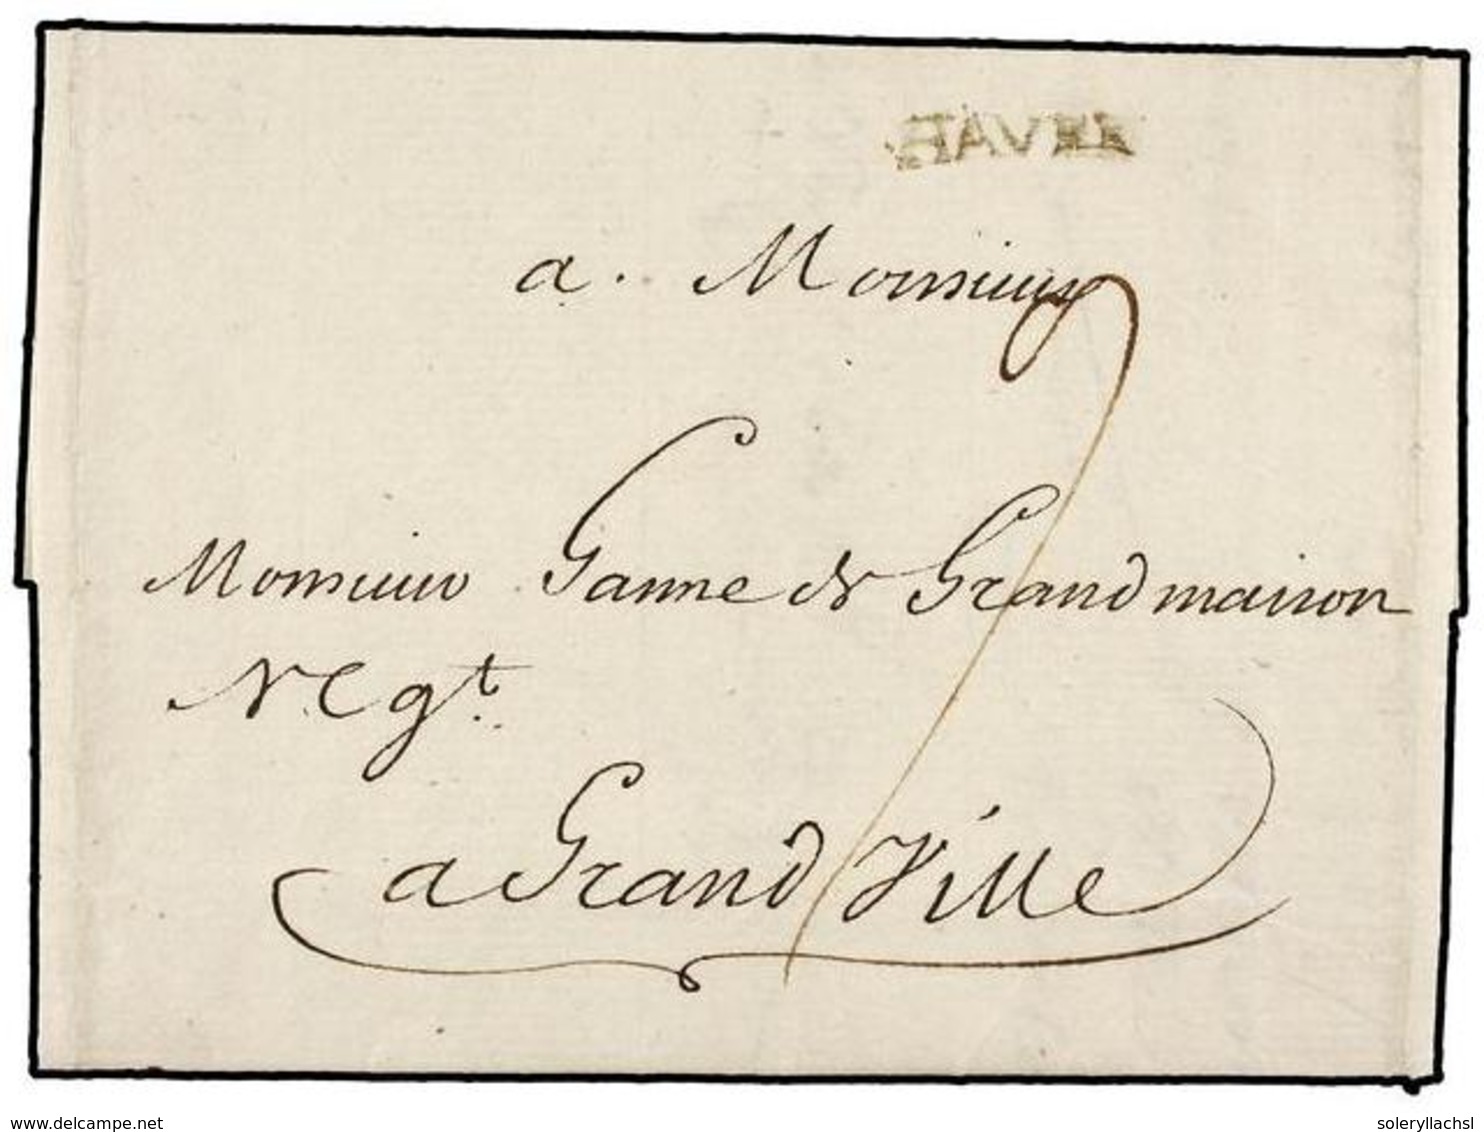 HAVRE
a. Monsieur
Monsieur Ganne de Grandmaison
Negt.
a Grand Ville
delcampe.net
soleryllachsl